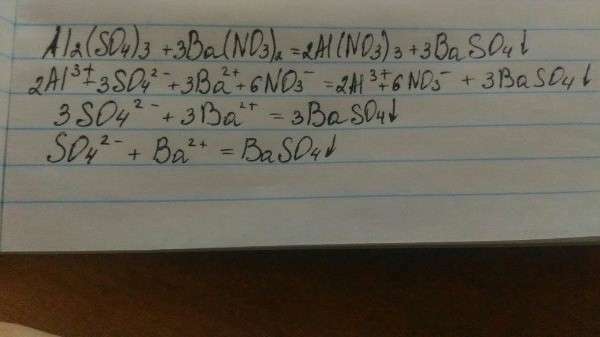 Al₂(SO₄)₃ + 3Ba(NO₃)₂ = 2Al(NO₃)₃ + 3BaSO₄↓
2Al³⁺ + 3SO₄²⁻ + 3Ba²⁺ + 6NO₃⁻ = 2Al³⁺ + 6NO₃⁻ + 3BaSO₄↓
3SO₄²⁻ + 3Ba²⁺ = 3BaSO₄↓
SO₄²⁻ + Ba²⁺ = BaSO₄↓